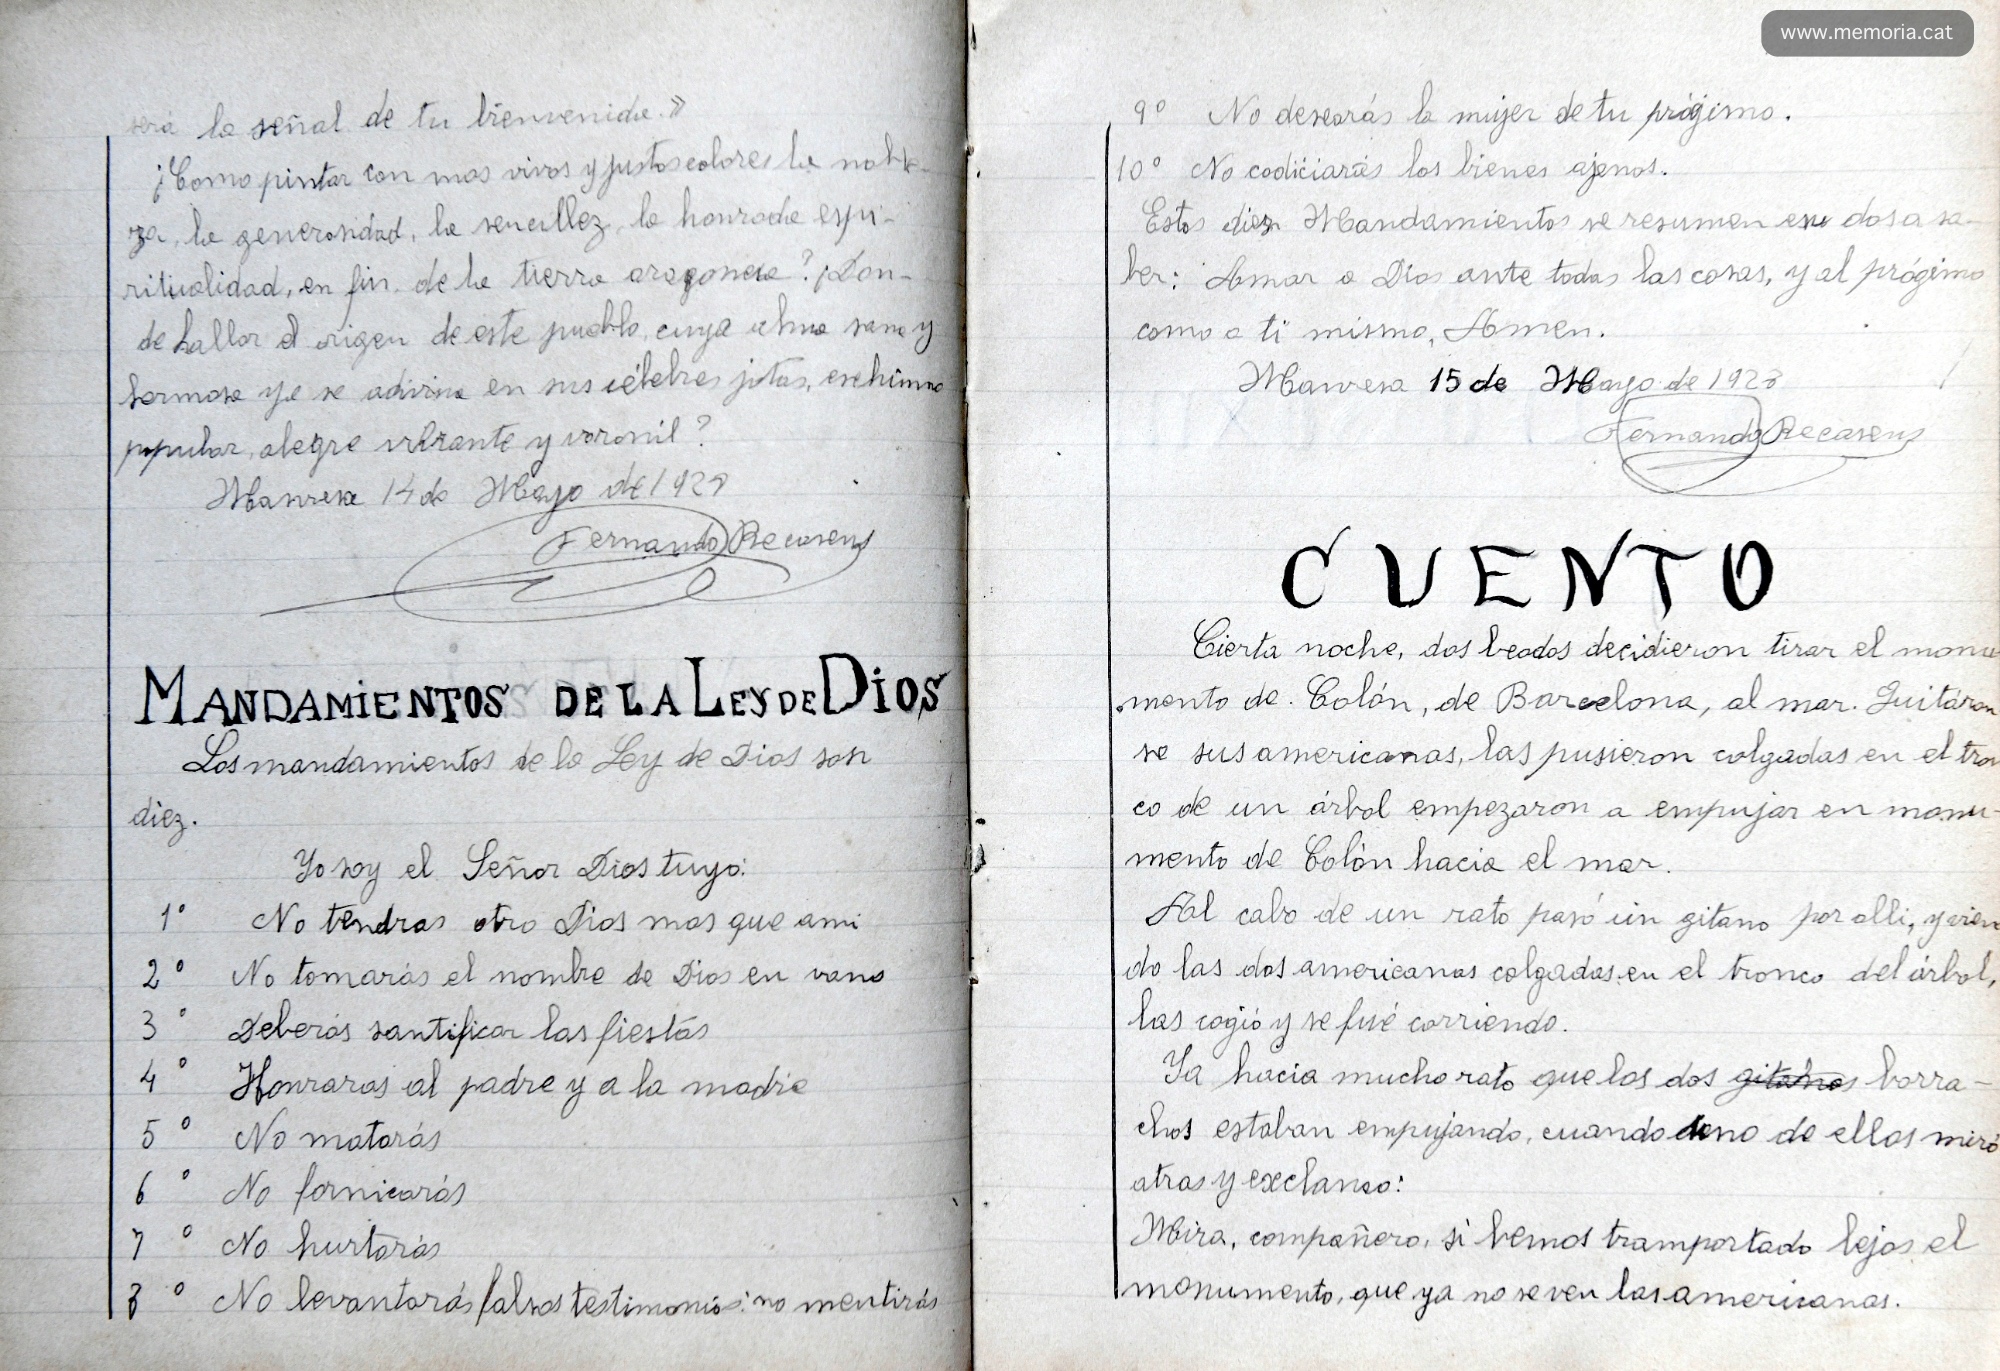 será la señal de tu bienvenida.»
¡Como pintar con mas vivos y justos colores la noble-
za, la generosidad, la sencillez, la honrada espi-
ritualidad, en fin, de la tierra aragonesa? ¡Don-
de hallar el origen de este pueblo, cuya alma sana y
hermosa ya se adivina en sus célebres jotas, ese himno
popular, alegre vibrante y varonil?
Manresa 14 de Mayo de 1928
Fernando Recasens
MANDAMIENTOS DE LA LEY DE DIOS
Los mandamientos de la Ley de Dios son
diez.
Yo soy el Señor Dios tuyo:
1º No tendras otro Dios mas que ami
2º No tomarás el nombre de Dios en vano
3º Deberás santificar las fiestas
4º Honraras al padre y a la madre
5º No matarás
6º No fornicarás
7º No hurtarás
8º No levantarás falsos testimonios: no mentirás
www.memoria.cat
9º No desearás la mujer de tu prógimo.
10º No codiciarás los bienes ajenos.
Estos diez Mandamientos se resumen en dos a sa-
ber: Amar a Dios ante todas las cosas, y al prógimo
como a ti mismo, Amen.
Manresa 15 de Mayo de 1928
Fernando Recasens
CUENTO
Cierta noche, dos beodos decidieron tirar el monu
mento de Colón, de Barcelona, al mar. Quitáron
se sus americanas, las pusieron colgadas en el tron
co de un árbol empezaron a empujar en monu-
mento de Colón hacia el mar.
Al cabo de un rato pasó un gitano por alli, y vien
do las dos americanas colgadas en el tronco del árbol,
las cogió y se fué corriendo.
Ya hacia mucho rato que los dos gitanos borra-
chos estaban empujando, cuando uno de ellos miró
atras y exclamo:
Mira, compañero, si hemos tramportado lejos el
monumento, que ya no se ven las americanas.